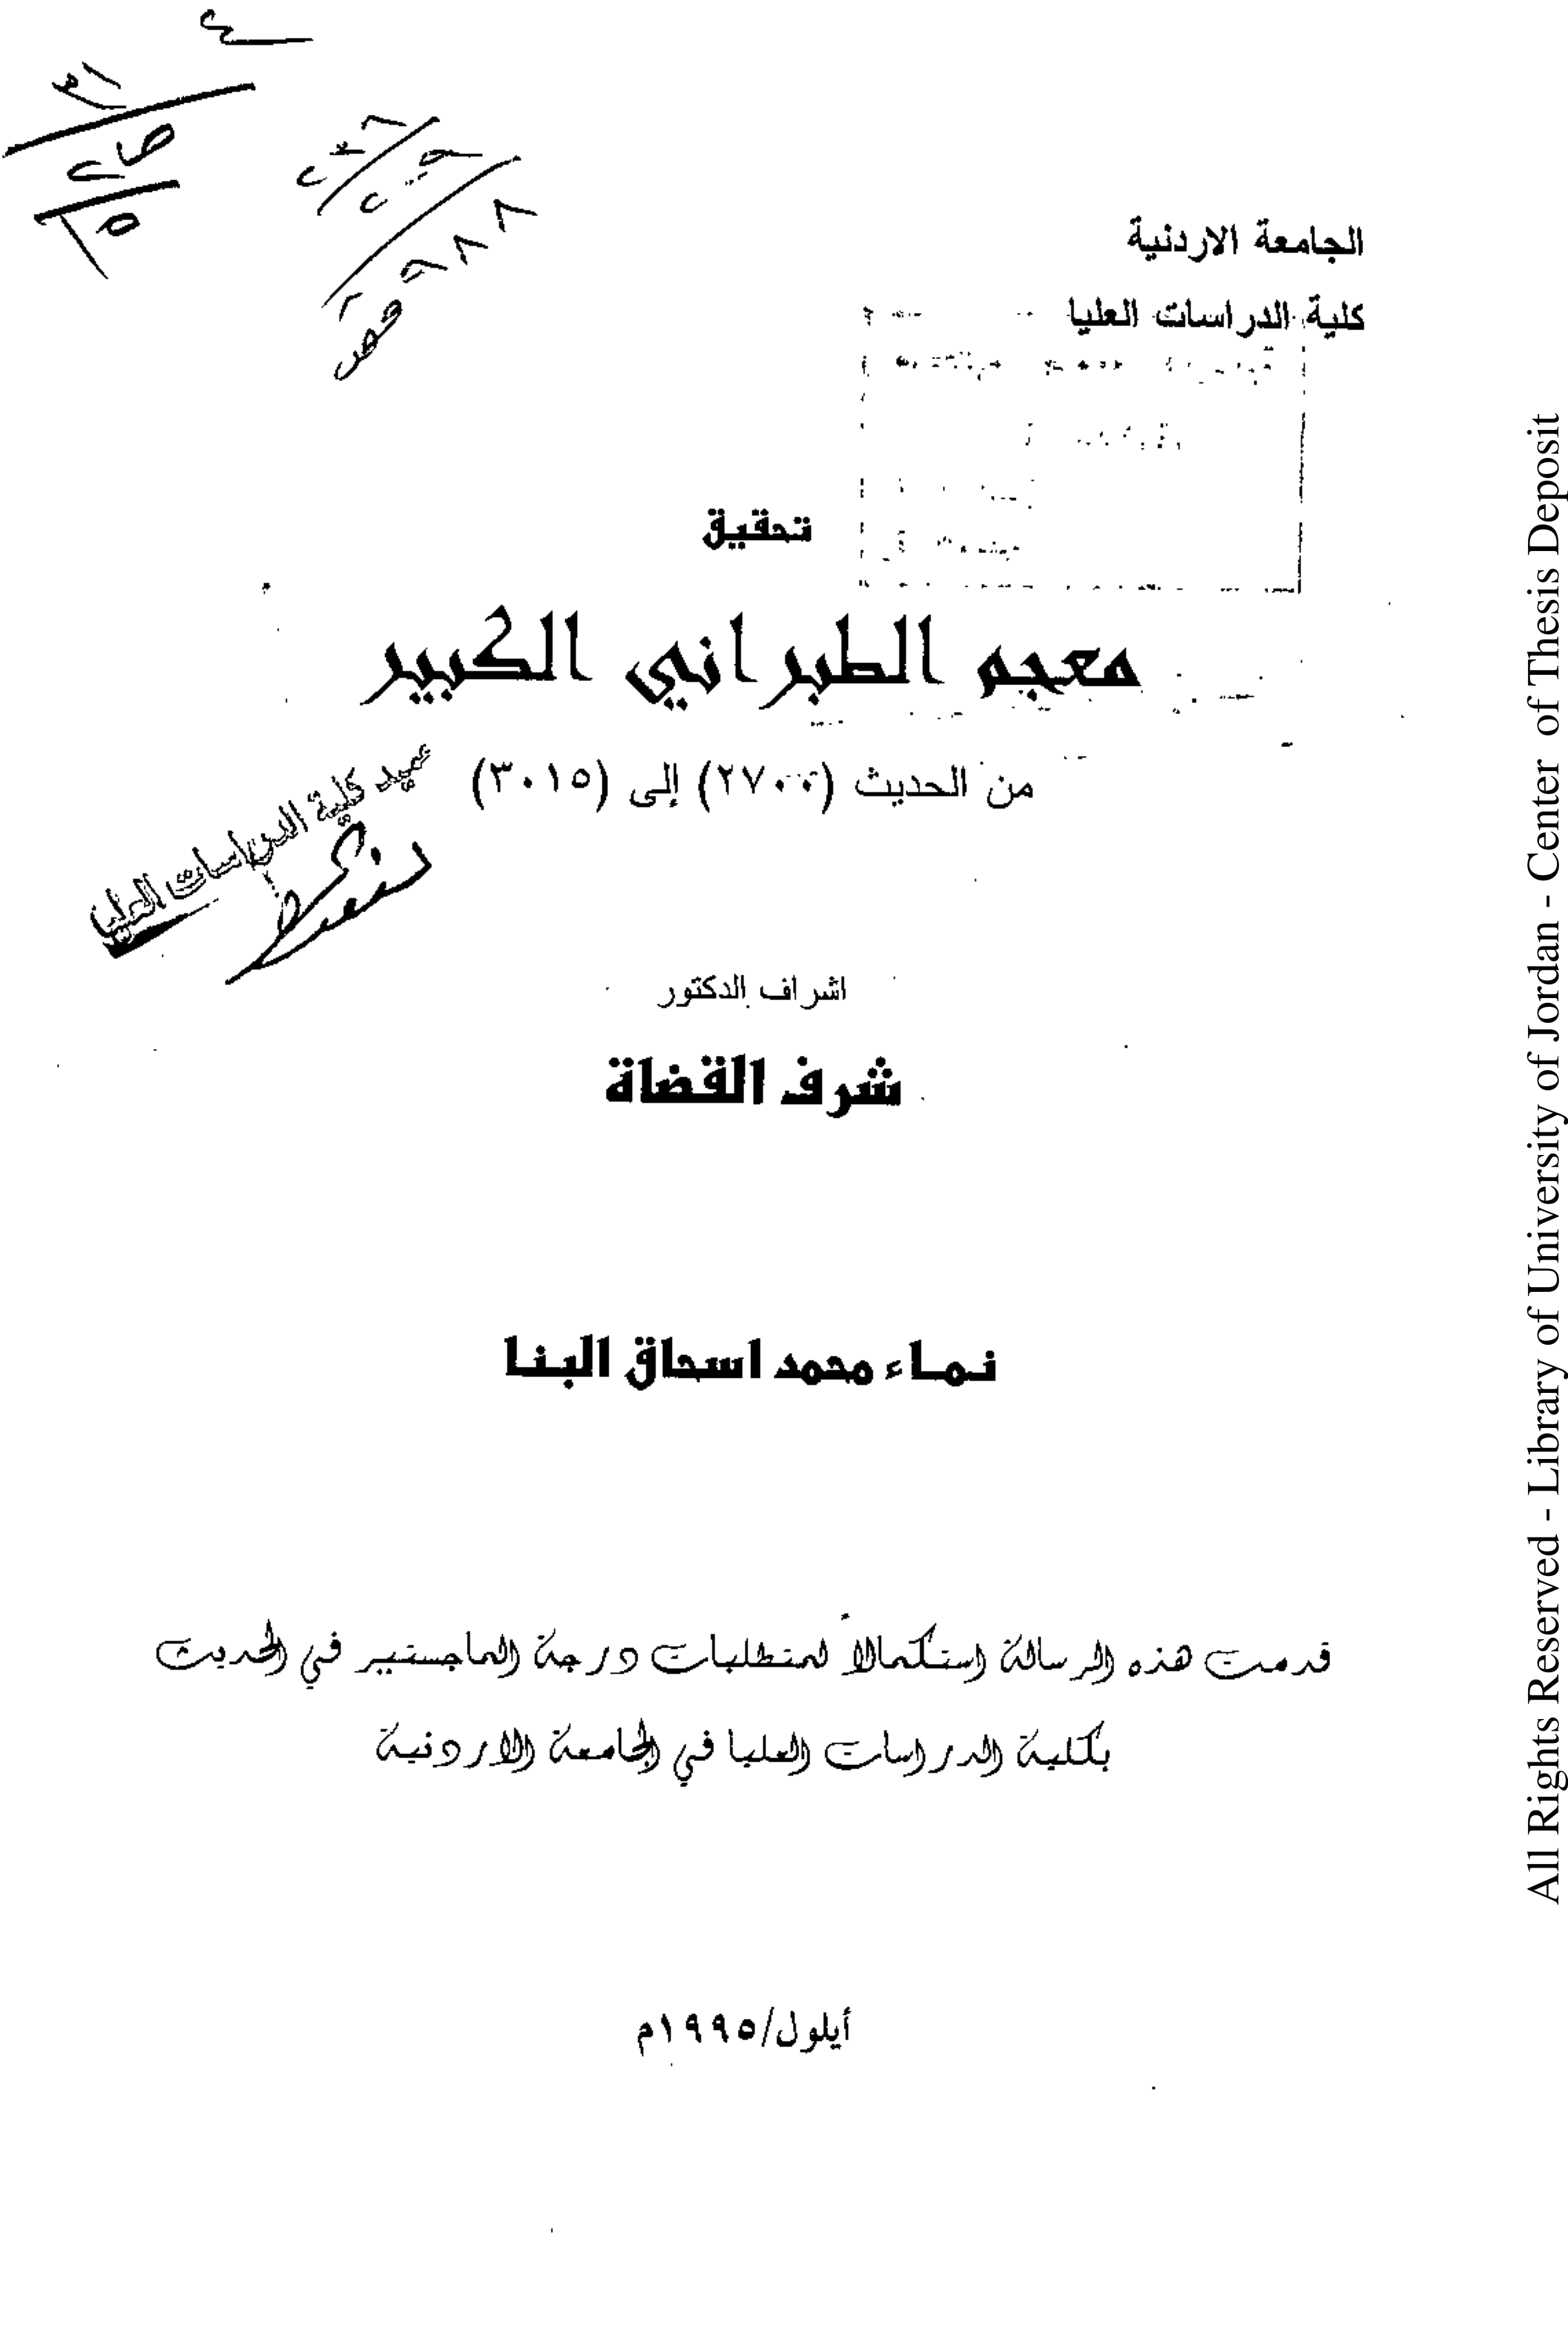 الجامعة الاردنية
كلية الدراسات العليا
تحقيق
معجم الطبراني الكبير
من الحديث (٢٧٠٠) إلى (٣٠١٥)
عميد كلية الدراسات العليا
اشراف الدكتور
شرف القضاة
نماء محمد اسحاق البنا
قدمت هذه الرسالة استكمالاً لمتطلبات درجة الماجستير في الحديث
بكلية الدراسات العليا في الجامعة الاردنية
أيلول/١٩٩٥م
All Rights Reserved - Library of University of Jordan - Center of Thesis Deposit